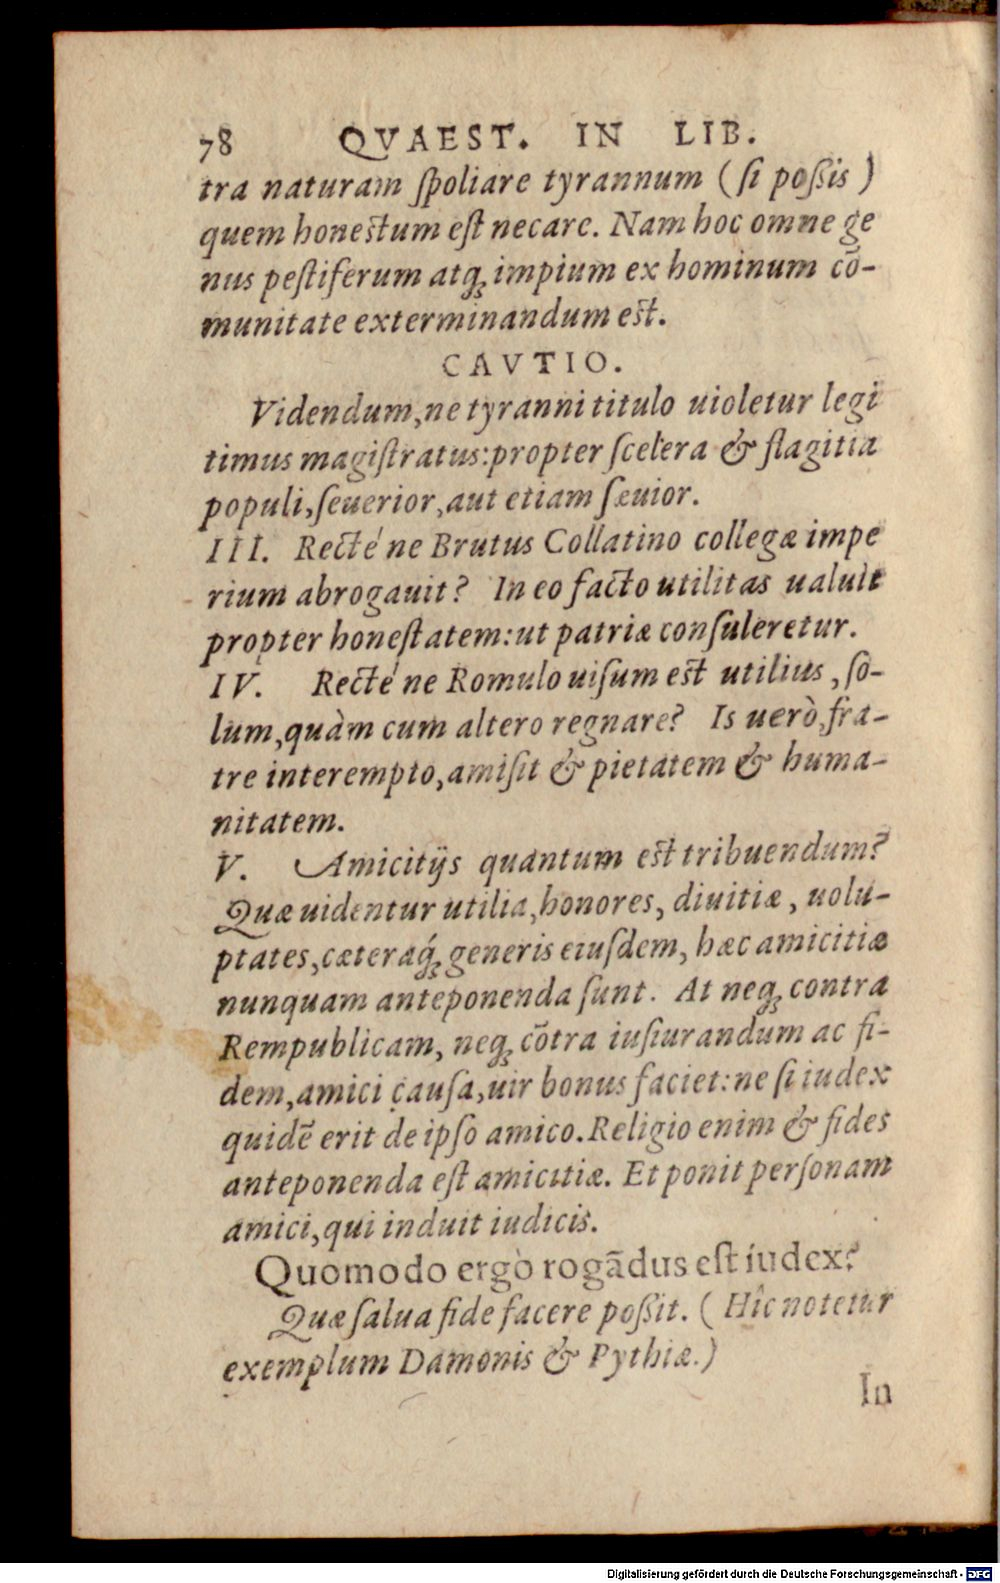 78 QVAEST. IN LIB.
tra naturam ſpoliare tyrannum ( ſi poßis )
quem honestum eſt necare. Nam hoc omne ge
nus peſtiferum atq; impium ex hominum cō-
munitate exterminandum est.
CAVTIO.
Videndum, ne tyranni titulo uioletur legi
timus magiſtratus: propter ſcelera & flagitia
populi, ſeuerior, aut etiam ſæuior.
III. Recté ne Brutus Collatino collegæ impe
rium abrogauit? In eo facto utilitas ualuit
propter honeſtatem: ut patriæ conſuleretur.
IV. Recté ne Romulo uiſum est utilius, ſo-
lum, quàm cum altero regnare? Is uerò, fra-
tre interempto, amiſit & pietatem & huma-
nitatem.
V. Amicitijs quantum est tribuendum?
Quæ uidentur utilia, honores, diuitiæ, uolu-
ptates, cæteraq́; generis eiuſdem, hæc amicitiæ
nunquam anteponenda ſunt. At neq; contra
Rempublicam, neq; cōtra iuſiurandum ac fi-
dem, amici cauſa, uir bonus faciet: ne ſi iudex
quidē erit de ipſo amico. Religio enim & fides
anteponenda eſt amicitiæ. Et ponit perſonam
amici, qui induit iudicis.
Quomodo ergò rogādus eſt iudex?
Quæ ſalua fide facere poßit. ( Hîc notetur
exemplum Damonis & Pythiæ.)
In
Digitalisierung gefördert durch die Deutsche Forschungsgemeinschaft - DFG